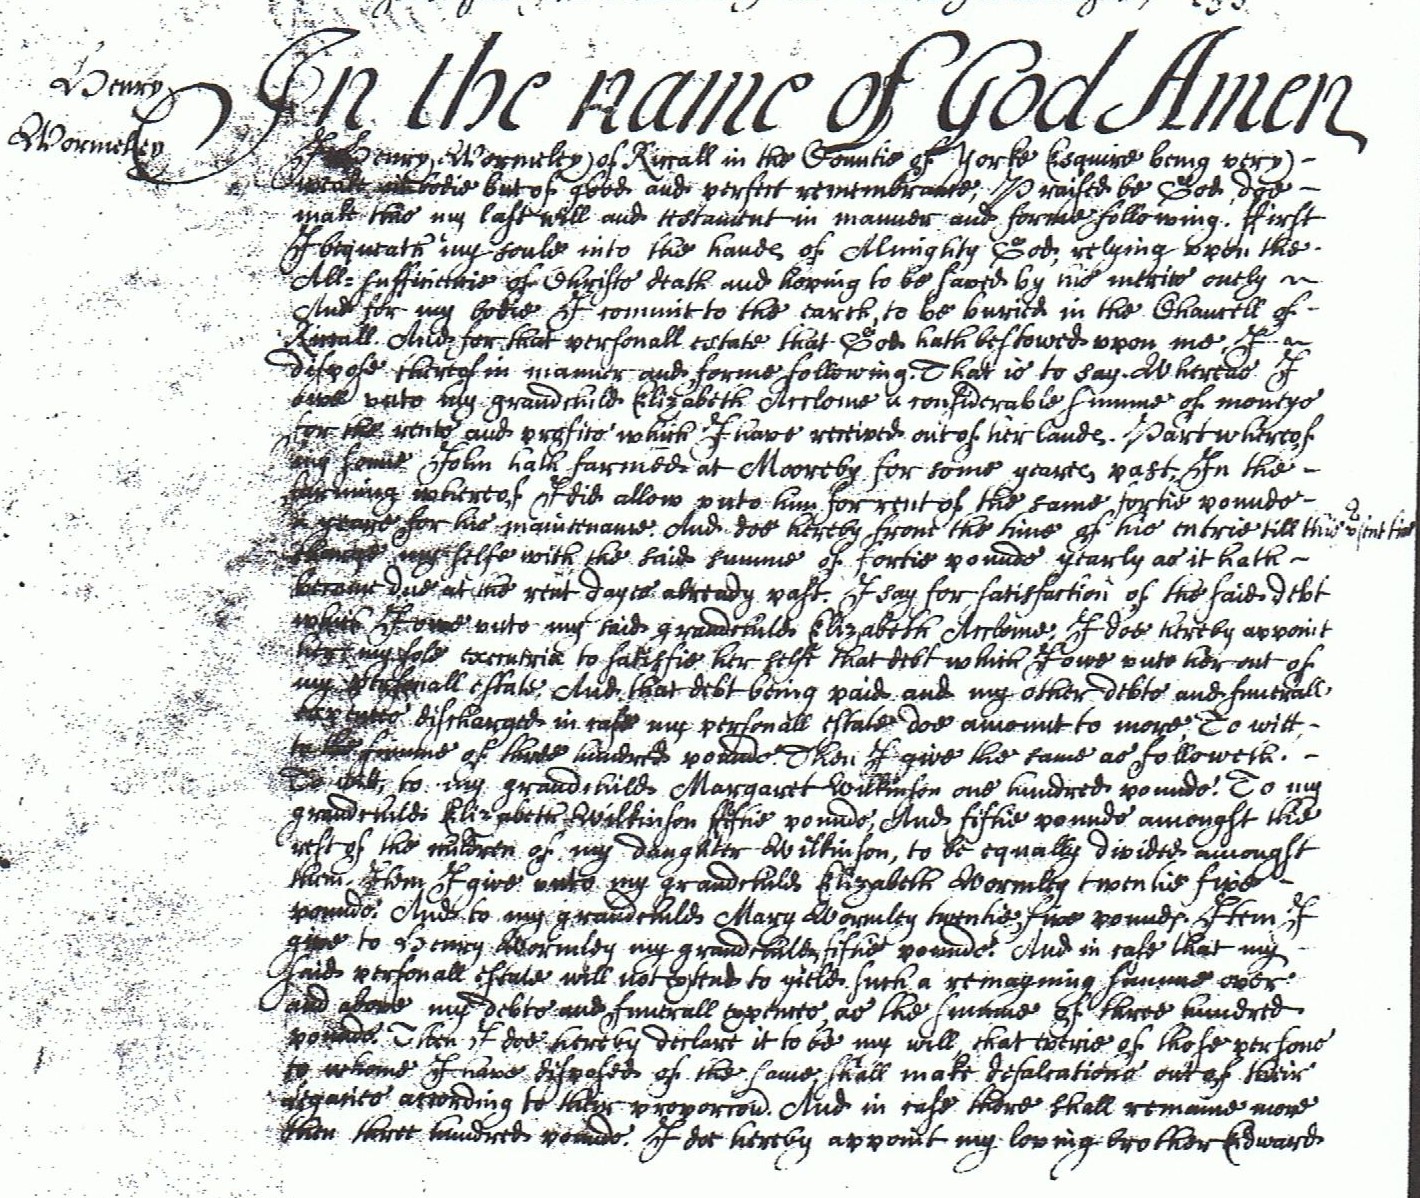 Henry
Wormeley
In the name of God Amen
I Henry Wormeley of Riccall in the Countie of Yorke Esquire being very
weake in bodie but of good and perfect remembrance, Praised be God, doe
make this my last will and testament in manner and forme following. ffirst
I bequeath my soule into the hands of Almighty God, relying vpon the
All=sufficiencie of Christs death and hoping to be saved by his merits onely
And for my bodie I commit to the earth, to be buried in the Chancell of
Riccall. And for that personall estate that God hath bestowed vpon me I
dispose thereof in manner and forme following. That is to say. Whereas I
owe vnto my grandchild Elizabeth Acclome a considerable summe of moneys
for the rents and profits which I have received out of her lands. Part whereof
my sonne John hath farmed at Mooreby for some yeares past, In the
farming whereof I did allow vnto him for rent of the same fortie pounds
a yeare for his maintenance. And doe hereby from the time of his entrie till this psent time
charge my selfe with the said summe of fortie pounds yearly as it hath
become due at the rent dayes already past. I say for satisfaction of the said debt
which I owe vnto my said grandchild Elizabeth Acclome, I doe hereby appoint
her my sole executrix to satisfie her selfe that debt which I owe vnto her out of
my personall estate. And that debt being paid and my other debts and funerall
expences discharged in case my personall estate doe amount to more, To witt,
to the summe of three hundred pounds. Then I give the same as followeth.
To witt, to my grandchild Margaret Wilkinson one hundred pounds. To my
grandchild Elizabeth Wilkinson fiftie pounds, And fiftie pounds amongst the
rest of the children of my daughter Wilkinson, to be equally divided amongst
them. Item I give vnto my grandchild Elizabeth Wormley twentie five
pounds. And to my grandchild Mary Wormley twentie five pounds. Item I
give to Henry Wormley my grandchild fiftie pounds. And in case that my
said personall estate will not extend to yield such a remayning summe over
and above my debts and funerall expences, as the summe of three hundred
pounds. Then I doe hereby declare it to be my will that everie of those persons
to whome I have disposed of the same shall make defalcations out of their
legacies according to their proporcon. And in case there shall remaine more
then three hundred pounds. I doe hereby appoint my loving brother Edward